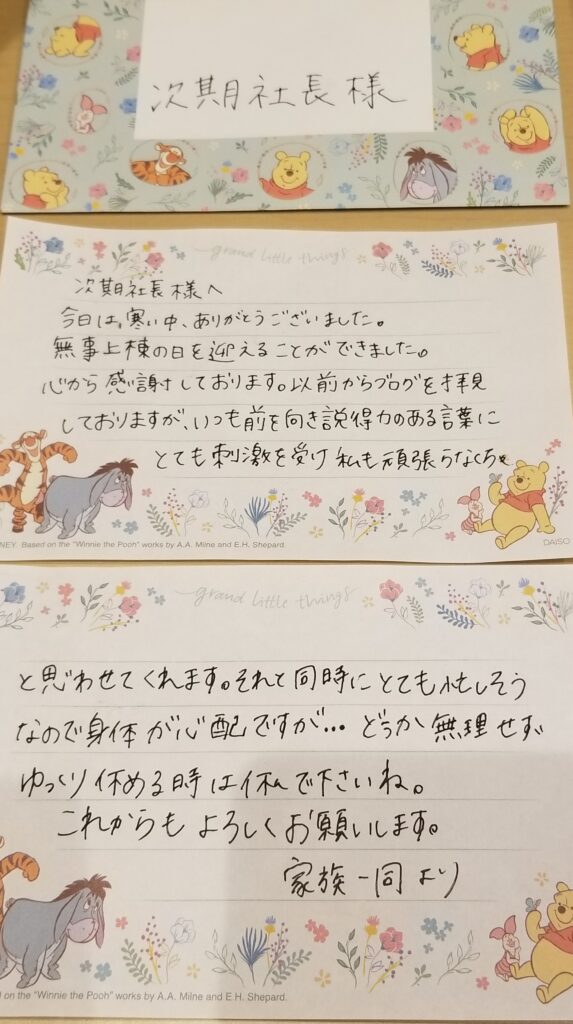 次期社長様
grand little things
次期社長様へ
今日は、寒い中、ありがとうございました。
無事上棟の日を迎えることができました。
心から感謝しております。以前からブログを拝見
しておりますが、いつも前を向き説得力のある言葉に
とても刺激を受け私も頑張らなくちゃ
NEY. Based on the "Winnie the Pooh" works by A.A. Milne and E.H. Shepard.
DAISO
grand little things
と思わせてくれます。それと同時にとても忙しそう
なので身体が心配ですが… どうか無理せず
ゆっくり休める時は休んで下さいね。
これからもよろしくお願いします。
家族一同より
d on the "Winnie the Pooh" works by A.A. Milne and E.H. Shepard.